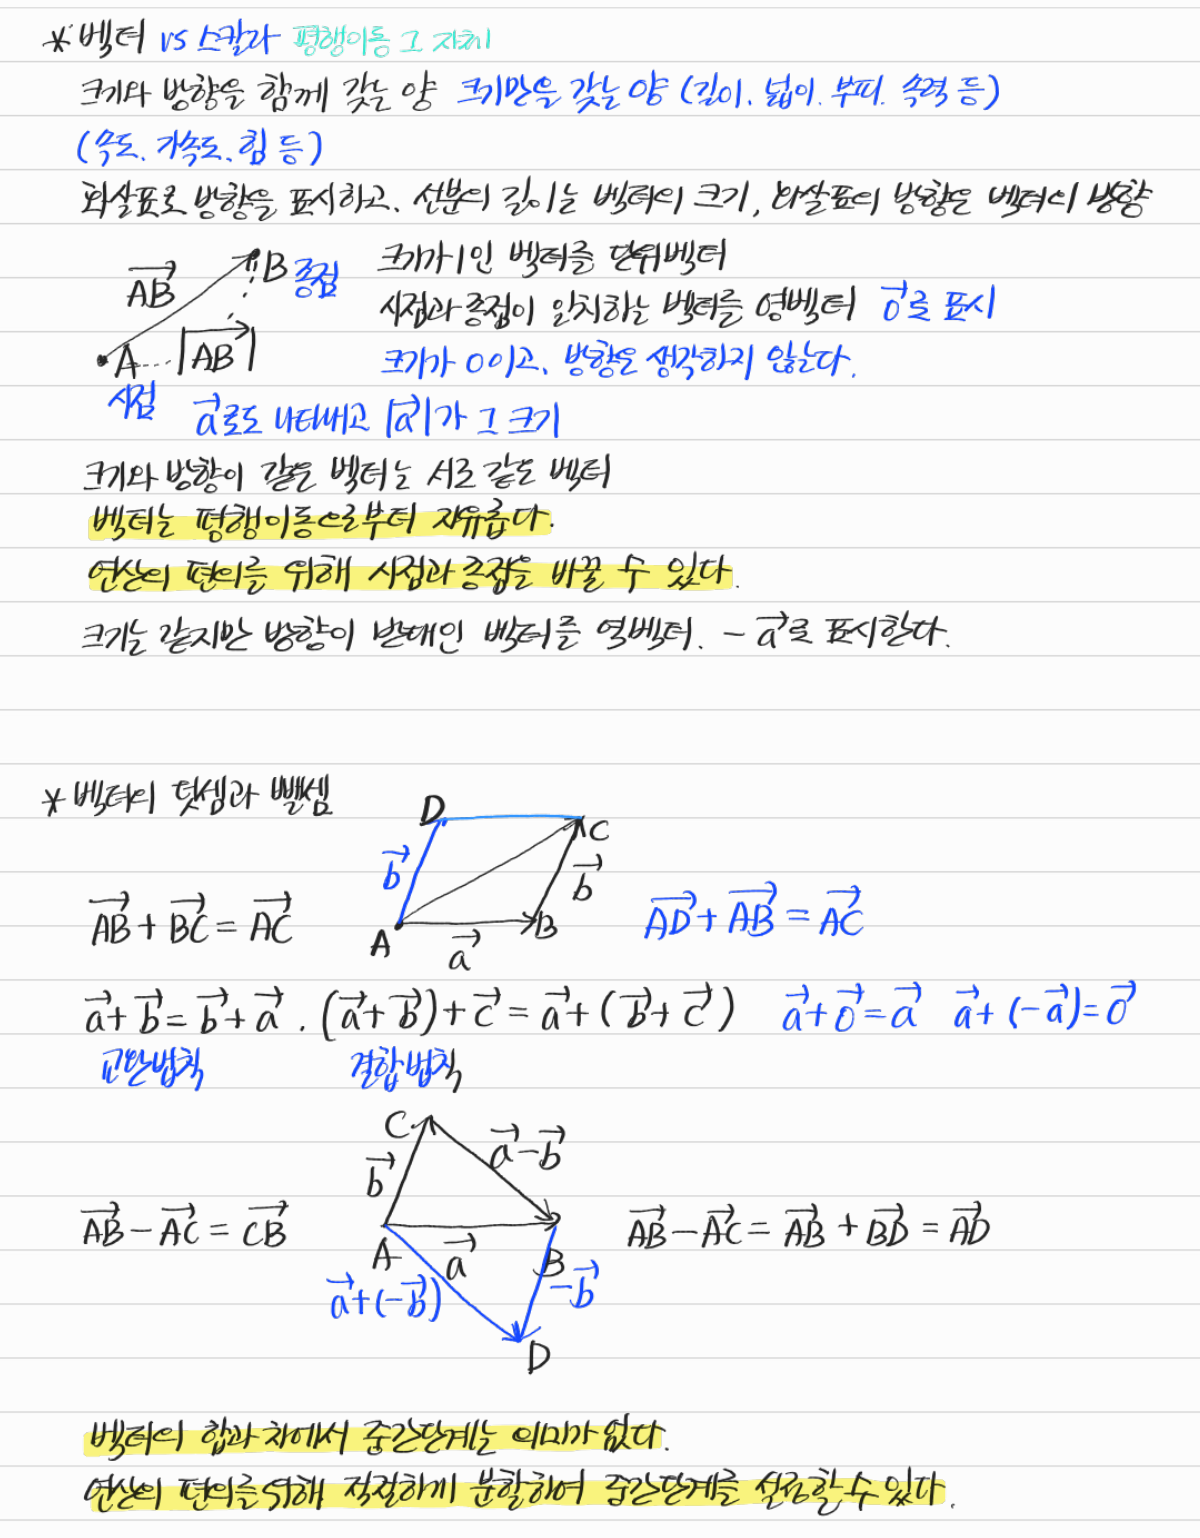 * 벡터 vs 스칼라 평행이동 그 자체
크기와 방향을 함께 갖는 양 크기만을 갖는 양 (길이, 넓이, 부피, 속력 등)
(속도, 가속도, 힘 등)
화살표로 방향을 표시하고, 선분의 길이는 벡터의 크기, 화살표의 방향은 벡터의 방향
AB→ B 종점 크기가 1인 벡터를 단위벡터
시점과 종점이 일치하는 벡터를 영벡터 0→로 표시
A |AB→| 크기가 0이고, 방향은 생각하지 않는다.
시점 a→로도 나타내고 |a→|가 그 크기
크기와 방향이 같은 벡터는 서로 같은 벡터
벡터는 평행이동으로부터 자유롭다.
연산의 편의를 위해 시점과 종점을 바꿀 수 있다.
크기는 같지만 방향이 반대인 벡터를 역벡터. - a→로 표시한다.
* 벡터의 덧셈과 뺄셈
D C
b→ b→
AB→ + BC→ = AC→ A a→ B AD→ + AB→ = AC→
a→ + b→ = b→ + a→ . (a→ + b→) + c→ = a→ + (b→ + c→) a→ + 0→ = a→ a→ + (-a→) = 0→
교환법칙 결합법칙
C a→ - b→
b→
AB→ - AC→ = CB→ AB→ - AC→ = AB→ + BD→ = AD→
A a→ B
a→ + (-b→) -b→
D
벡터의 합과 차에서 중간단계는 의미가 없다.
연산의 편의를 위해 적절하게 분할하여 중간단계를 설정할 수 있다.